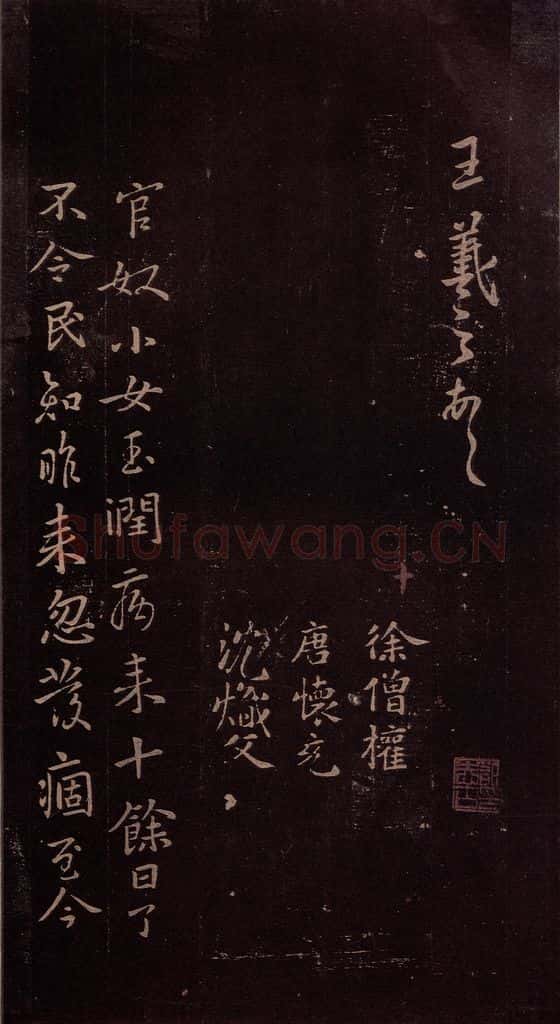 王羲之頓首
徐僧權
唐懷充
沈熾文
官奴小女玉潤病来十餘日了
不令民知昨来忽發痼至今
Shufawang.CN